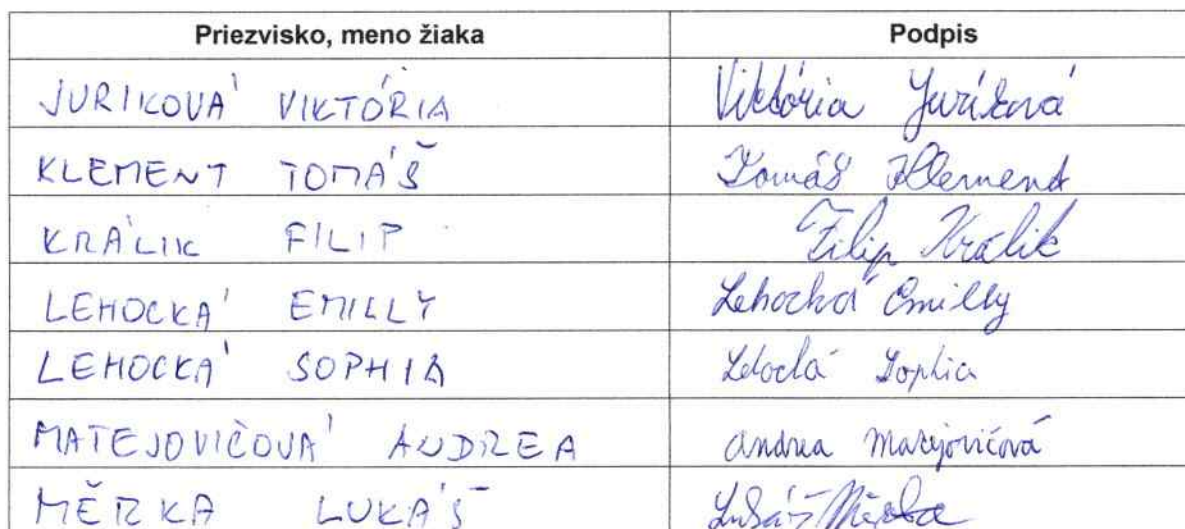 Priezvisko, meno žiaka Podpis
JURIKOVÁ VIKTÓRIA Viktória Juríková
KLEMENT TOMÁŠ Tomáš Klement
KRÁLIK FILIP Filip Králik
LEHOCKÁ EMILLY Lehocká Emilly
LEHOCKÁ SOPHIA Lehocká Sophia
MATEJOVIČOVÁ ANDREA Andrea Matejovičová
MĚRKA LUKÁŠ Lukáš Měrka